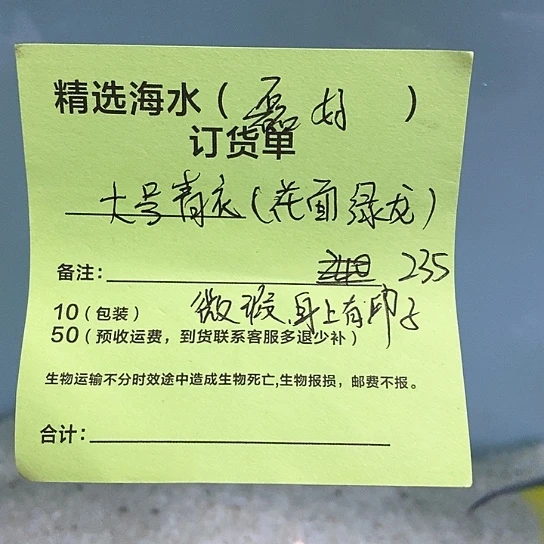 精选海水（磊　）
订货单
大号青衣(花面绿龙)
备注： 235
微瑕、身上有印子
10（包装）
50（预收运费，到货联系客服多退少补）
生物运输不分时效途中造成生物死亡,生物报损，邮费不报。
合计：